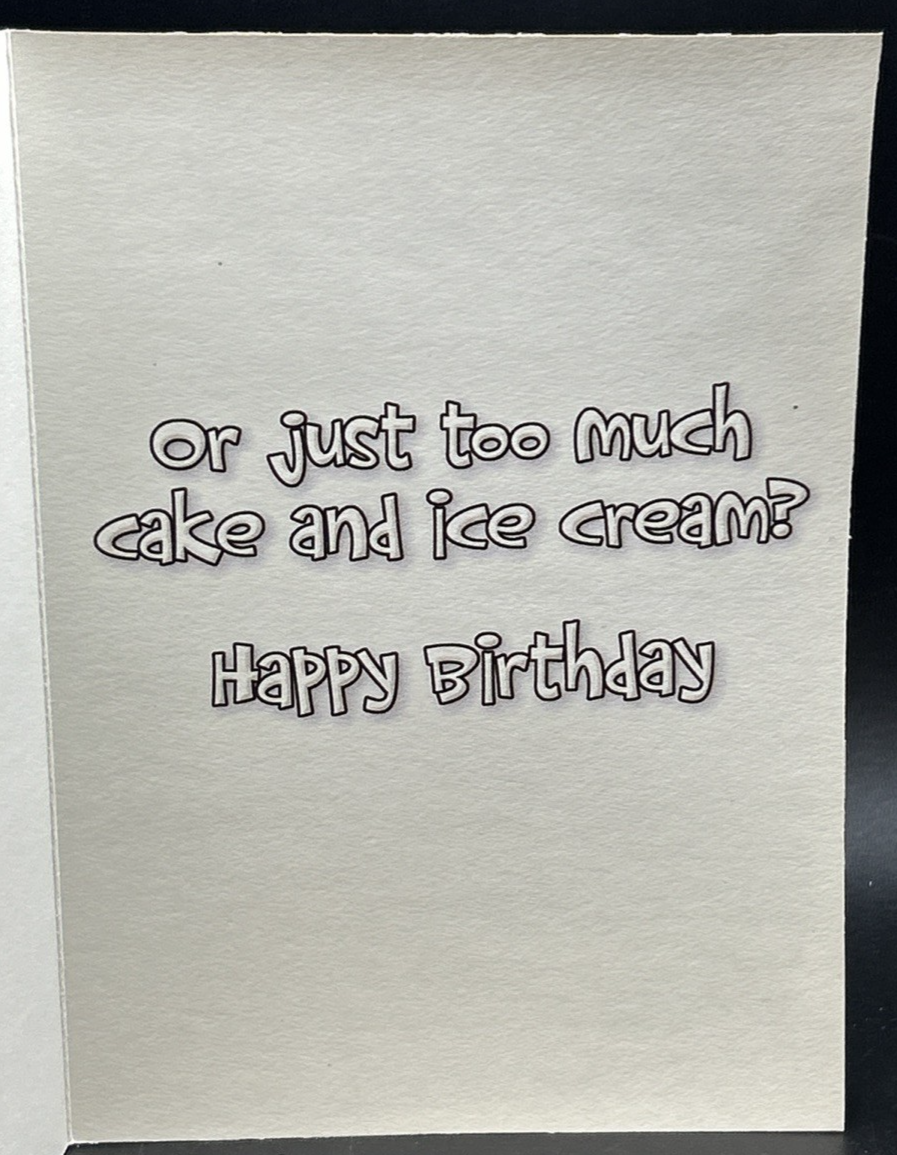 Or just too much
cake and ice cream?
Happy Birthday